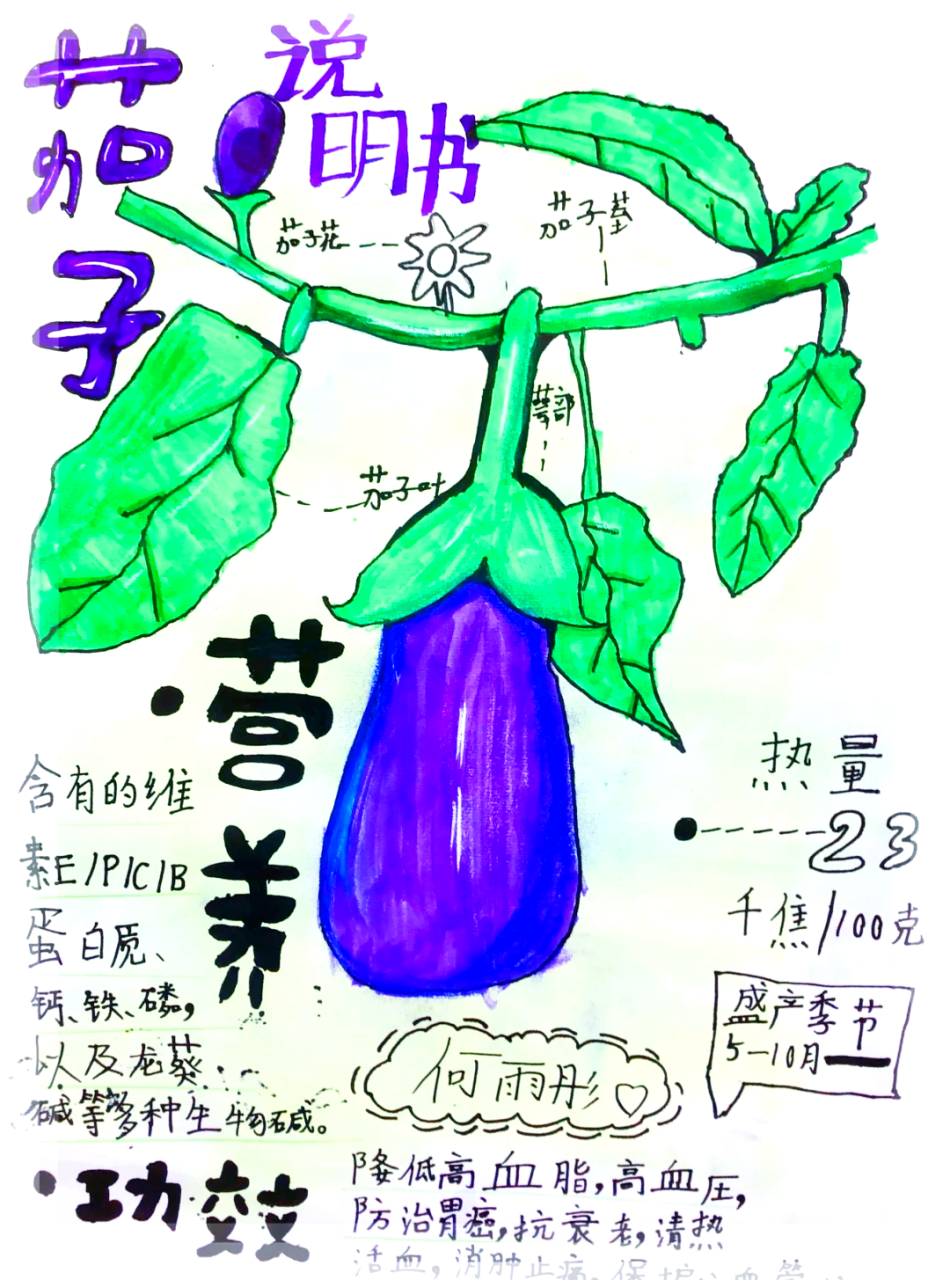 茄子
说
明书
茄子花
茄子茎
萼部
茄子叶
营养
含有的维
素E/P/C/B
蛋白质、
钙、铁、磷，
以及龙葵
碱等多种生物碱。
热量
23
千焦/100克
盛产季节
5-10月
何雨彤
功效
降低高血脂，高血压，
防治胃癌，抗衰老，清热
活血，消肿止痛，保护心血管